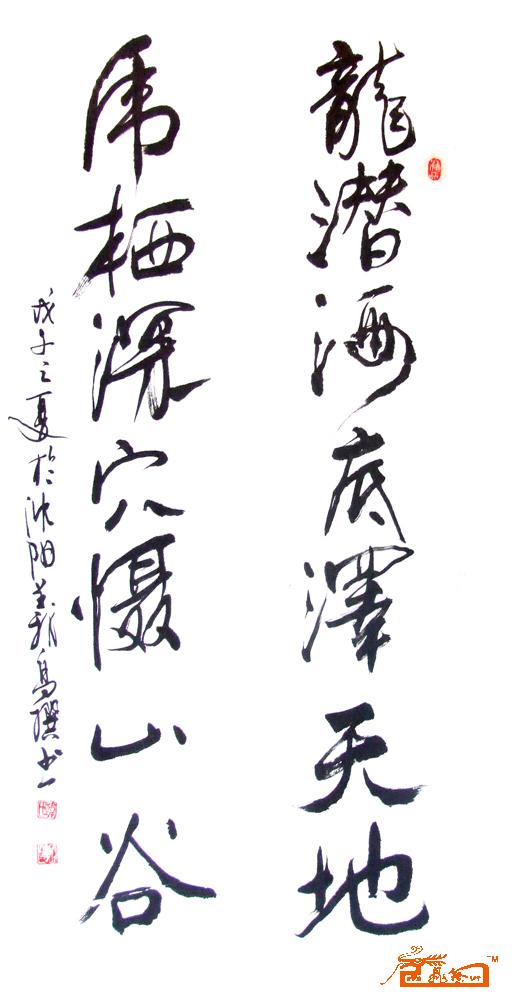 龍潜海底澤天地
虎栖深穴慑山谷
戊子之夏於沈阳
撰书